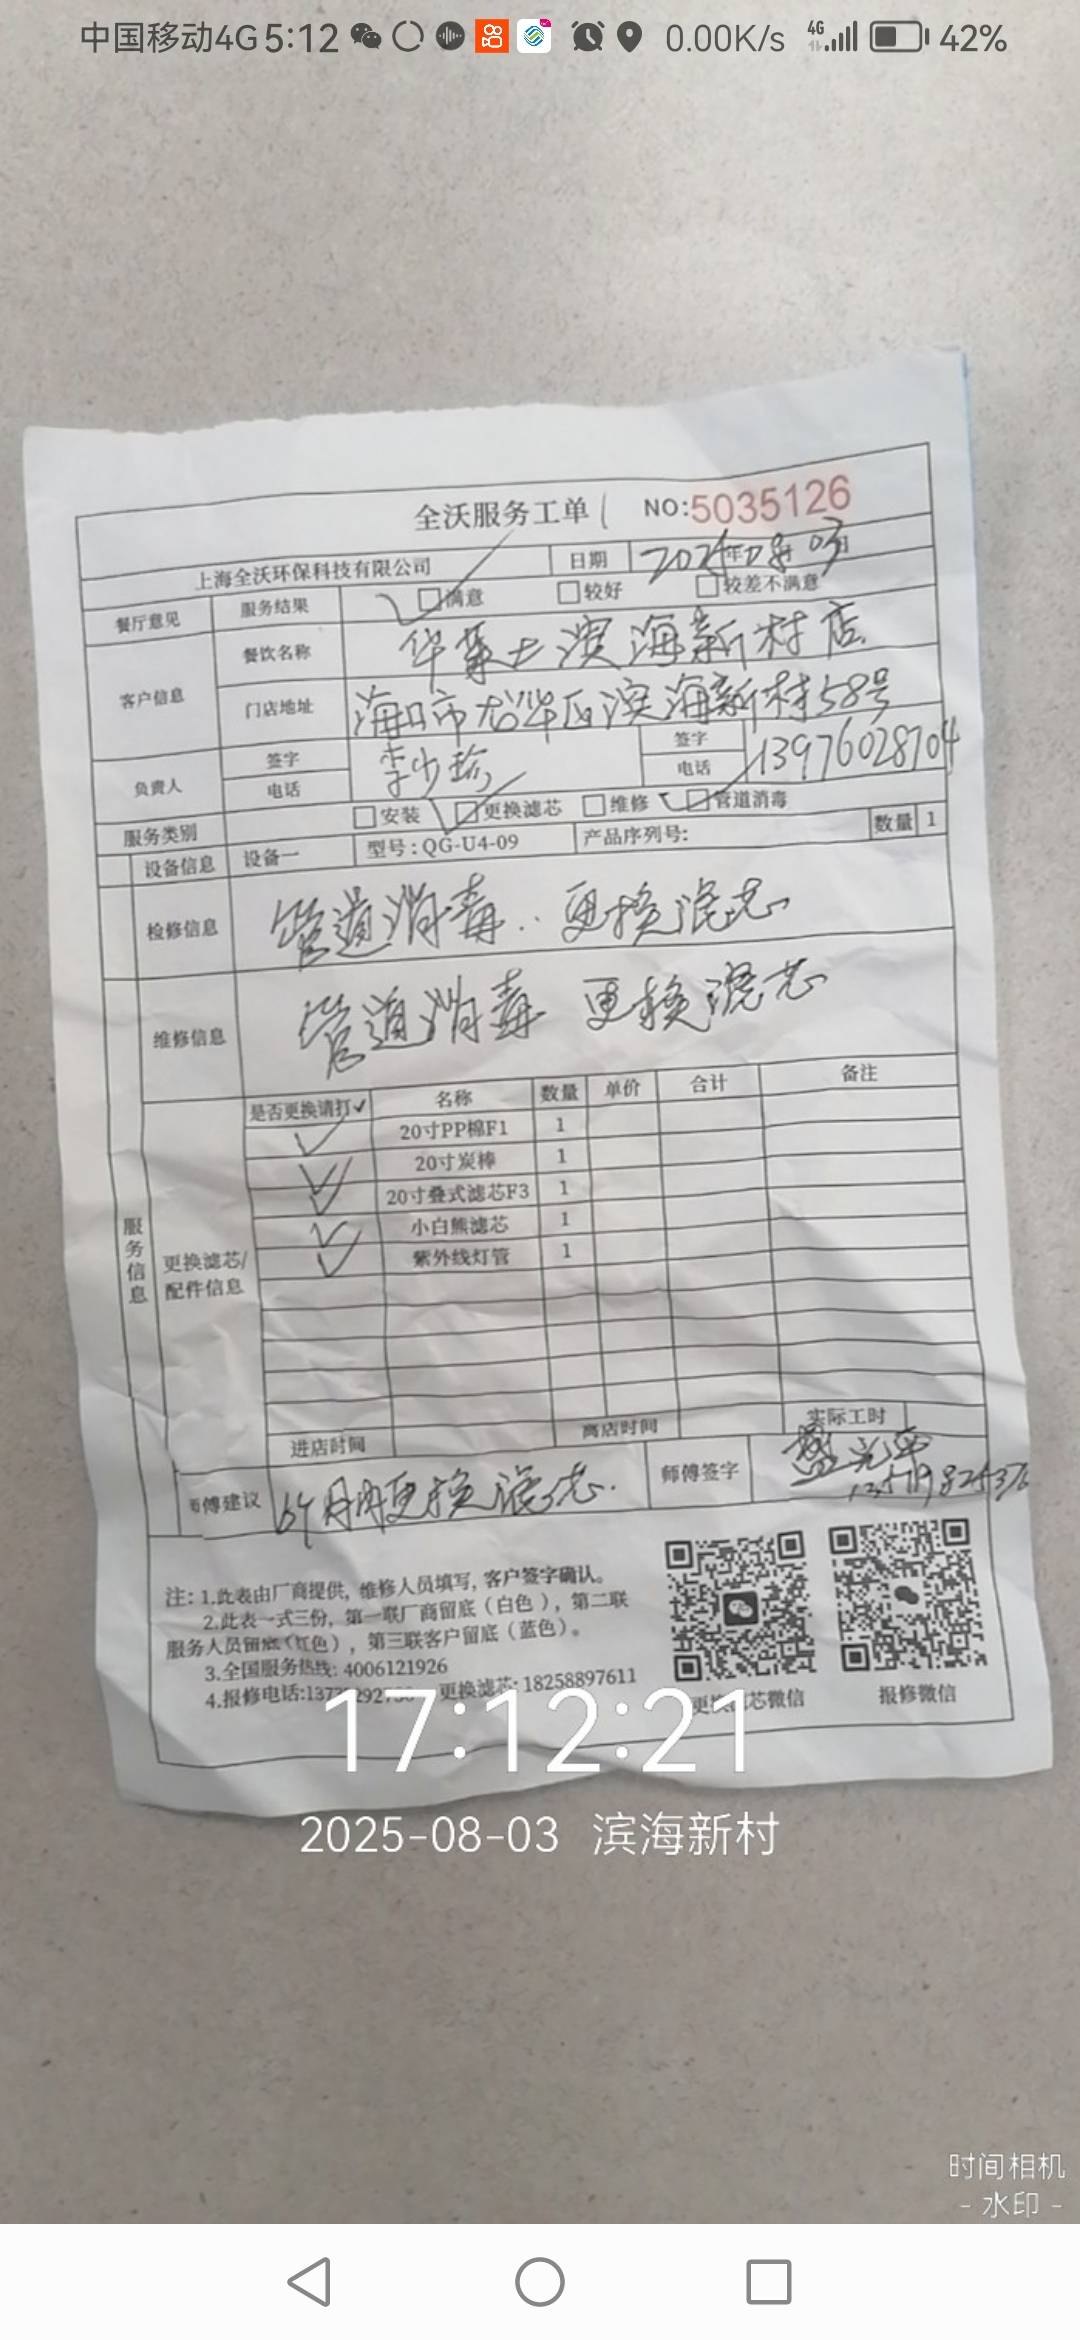 中国移动4G 5:12 0.00K/s 4G 42%
全沃服务工单 NO:5035126
上海全沃环保科技有限公司 日期 2025年08月03日
餐厅意见 服务结果 满意 较好 较差不满意
客户信息 餐饮名称 华莱士滨海新村店
门店地址 海口市龙华区滨海新村58号
负责人 签字 李少珍 签字
电话 电话 13976028704
服务类别 安装 更换滤芯 维修 管道消毒
设备信息 设备一 型号:QG-U4-09 产品序列号: 数量 1
检修信息 管道消毒.更换滤芯
维修信息 管道消毒 更换滤芯
服务信息
更换滤芯/
配件信息
是否更换请打✓ 名称 数量 单价 合计 备注
✓ 20寸PP棉F1 1
✓ 20寸炭棒 1
✓ 20寸叠式滤芯F3 1
✓ 小白熊滤芯 1
✓ 紫外线灯管 1
进店时间 离店时间 实际工时
师傅建议 6个月内更换滤芯. 师傅签字
注: 1.此表由厂商提供, 维修人员填写, 客户签字确认。
2.此表一式三份, 第一联厂商留底(白色), 第二联
服务人员留底(红色), 第三联客户留底(蓝色)。
3.全国服务热线: 4006121926
4.报修电话: 更换滤芯: 18258897611
更换滤芯微信 报修微信
17:12:21
2025-08-03 滨海新村
时间相机
- 水印 -